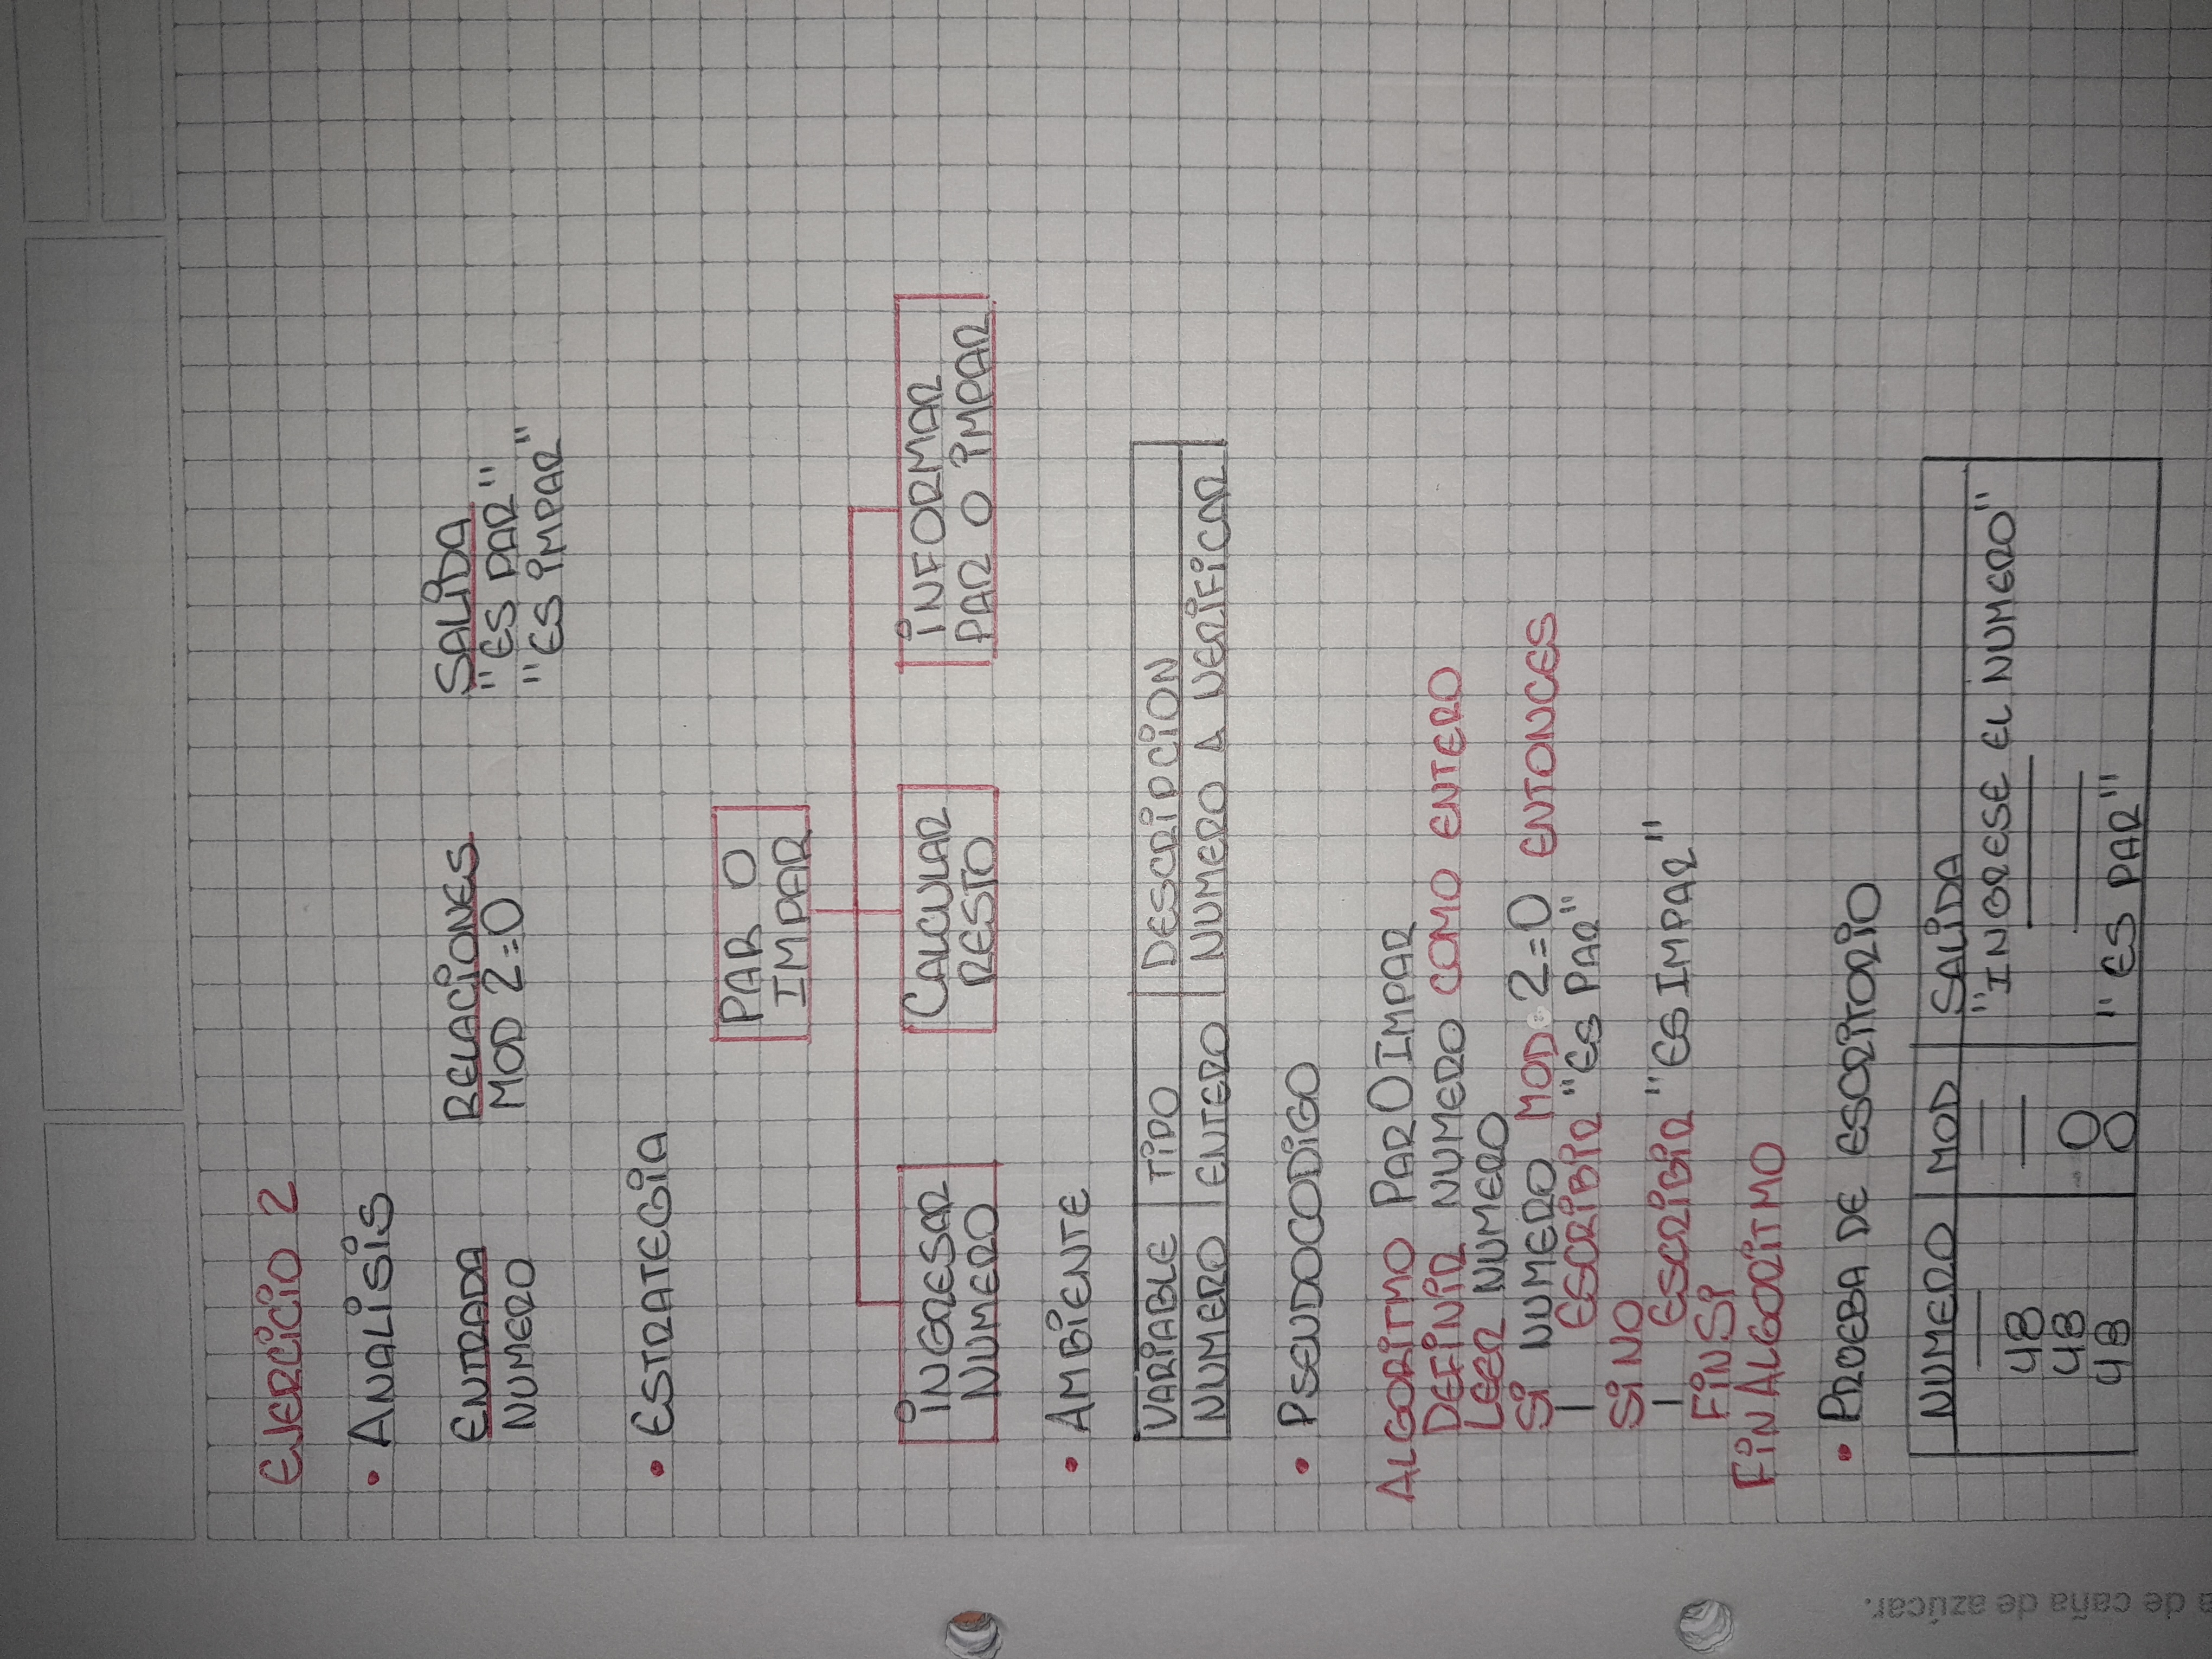 EJERCICIO 2
• ANALISIS
ENTRADA RELACIONES SALIDA
NUMERO MOD 2=0 "ES PAR"
"ES IMPAR"
• ESTRATEGIA
PAR O
IMPAR
INGRESAR
NUMERO
CALCULAR
RESTO
INFORMAR
PAR O IMPAR
• AMBIENTE
VARIABLE TIPO DESCRIPCION
NUMERO ENTERO NUMERO A VERIFICAR
• PSEUDOCODIGO
ALGORITMO PAR O IMPAR
DEFINIR NUMERO COMO ENTERO
LEER NUMERO
SI NUMERO MOD 2=0 ENTONCES
ESCRIBIR "ES PAR"
SINO
ESCRIBIR "ES IMPAR"
FINSI
FINALGORITMO
• PRUEBA DE ESCRITORIO
NUMERO MOD SALIDA
— — "INGRESE EL NUMERO"
48 — —
48 0 —
48 0 "ES PAR"
a de caña de azúcar.